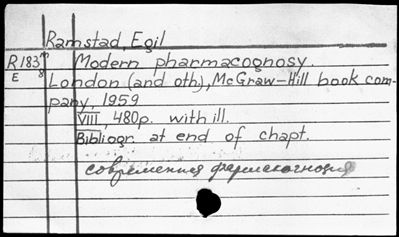 Ramstad, Egil
R183 Modern pharmacognosy.
E London (and oth), McGraw-Hill book com-
pany, 1959
VIII, 480p. with ill.
Bibliogr. at end of chapt.
современная фармакогнозия